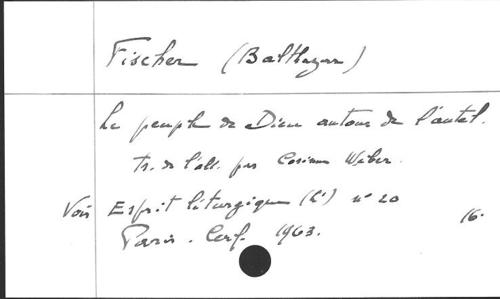 Fischer (Balthazar)
Le peuple de Dieu autour de l'autel.
Tr. de l'all. par Corinne Weber.
Voir Esprit liturgique (L') n° 20
Paris. Cerf. 1963. 16.